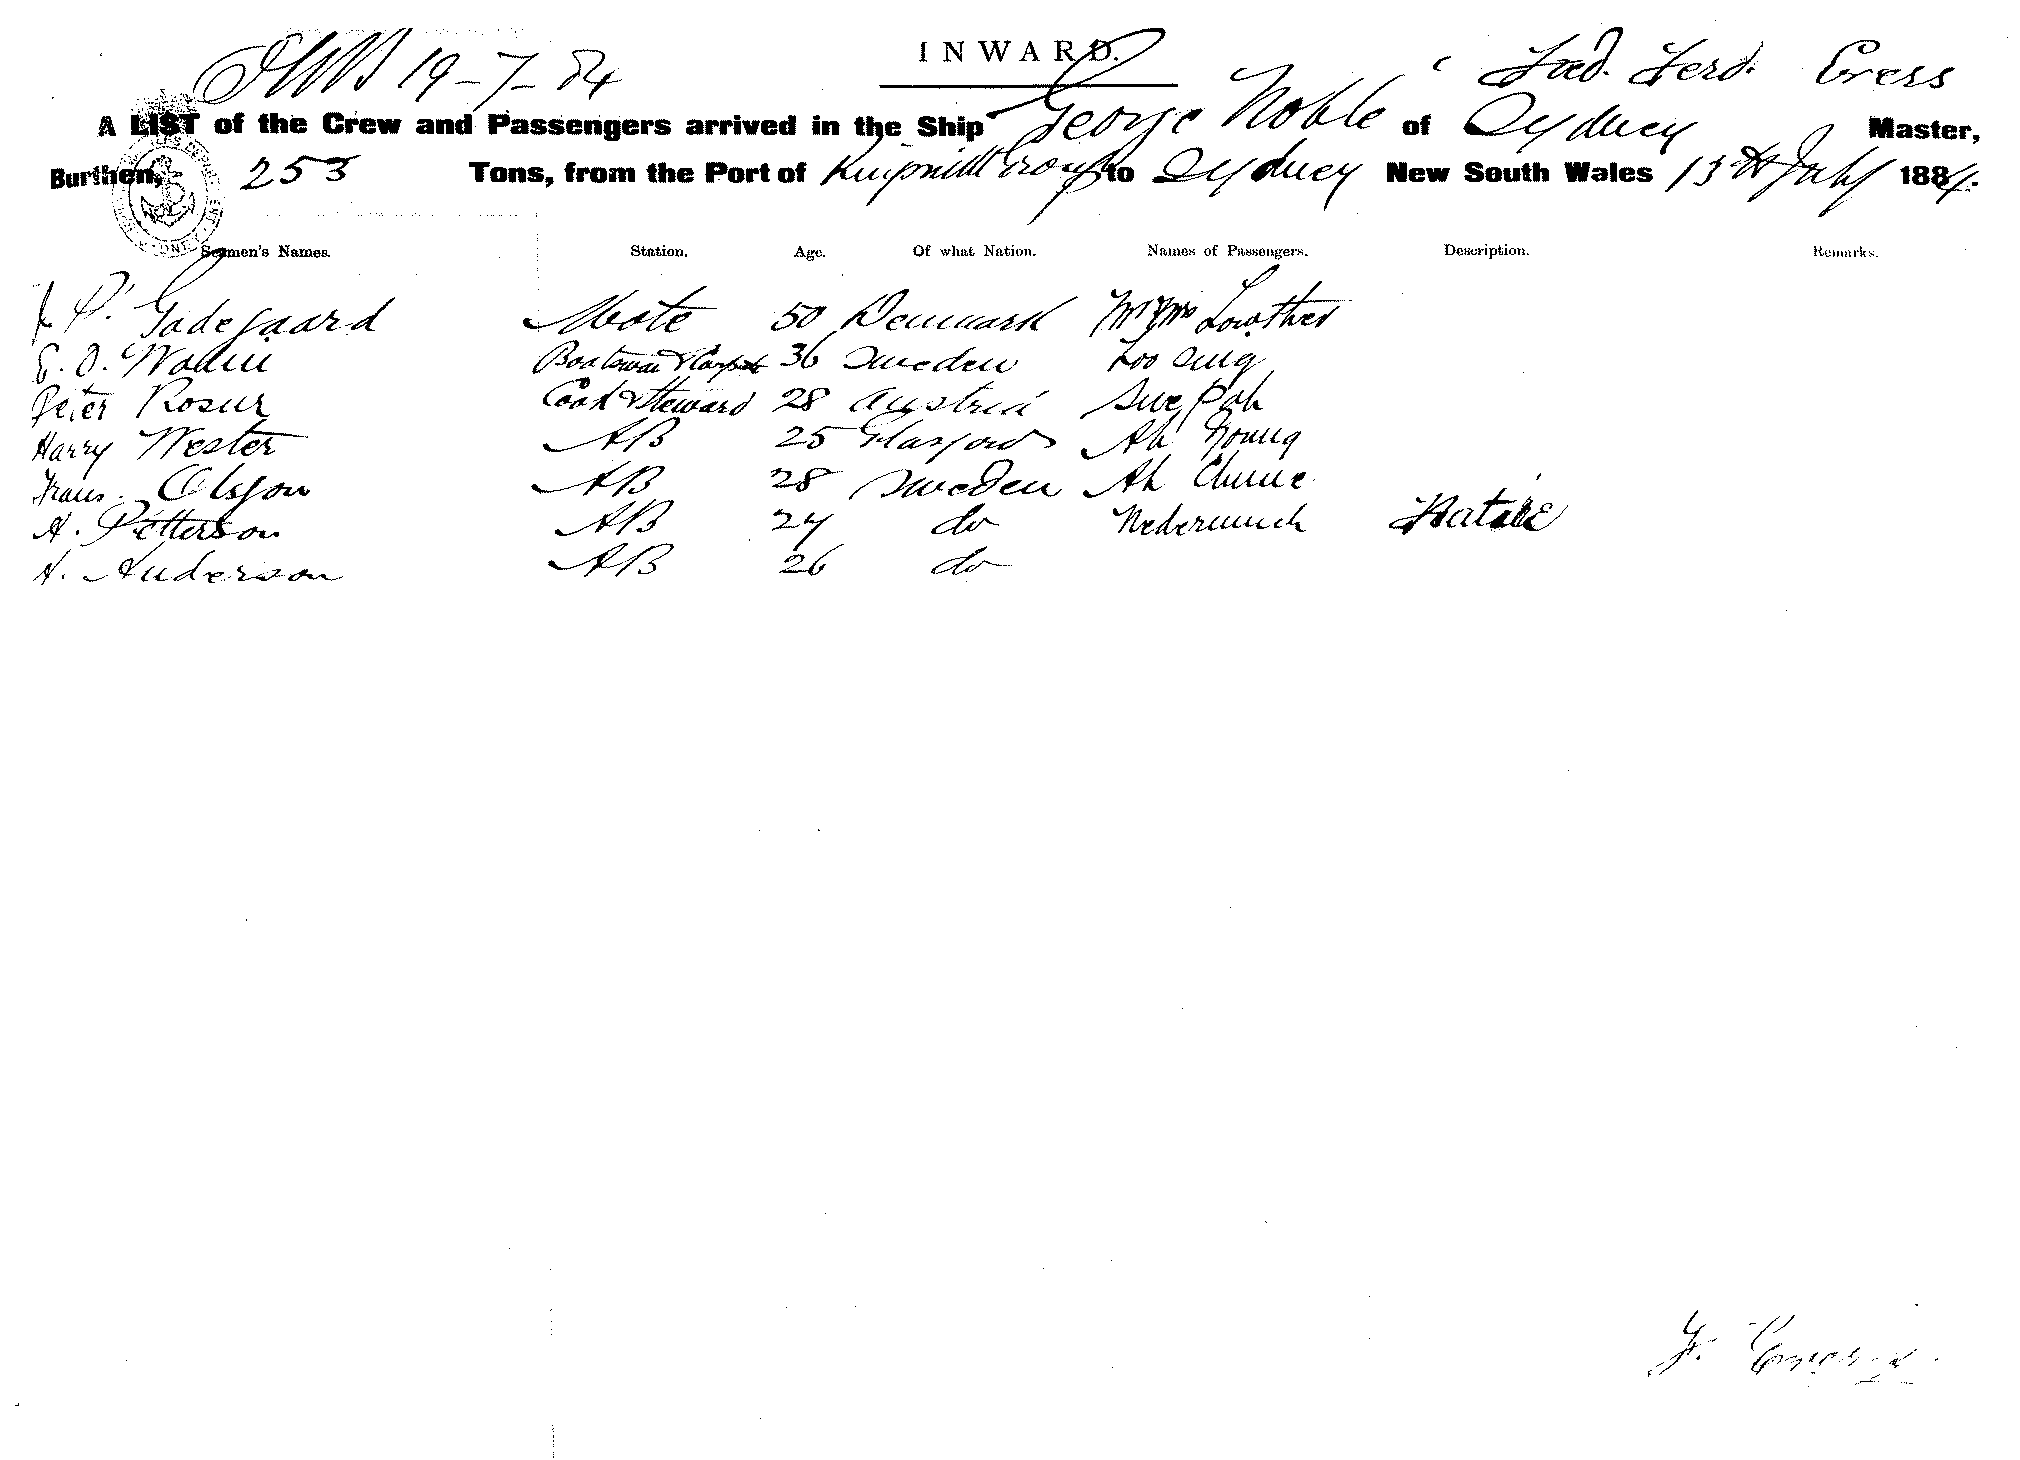 INWARD.
19-7-84
Ferd. Eress
A LIST of the Crew and Passengers arrived in the Ship George Noble of Sydney Master,
Burthen, 253 Tons, from the Port of Kingsmill Group to Sydney New South Wales 13th July 1884.
Seamen's Names. Station. Age. Of what Nation. Names of Passengers. Description. Remarks.
P. Gadegaard Mate 50 Denmark Mr & Mrs Lowther
E. O. Wadin Boatswain & Carpt 36 Sweden Loo Sing
Peter Rosur Cook & Steward 28 Austria Sue Pah
Harry Wester AB 25 Glasgow Ah Young
Frans. Olsson AB 28 Sweden Ah Chune
A. Petterson AB 24 do Native
A. Anderson AB 26 do
F.